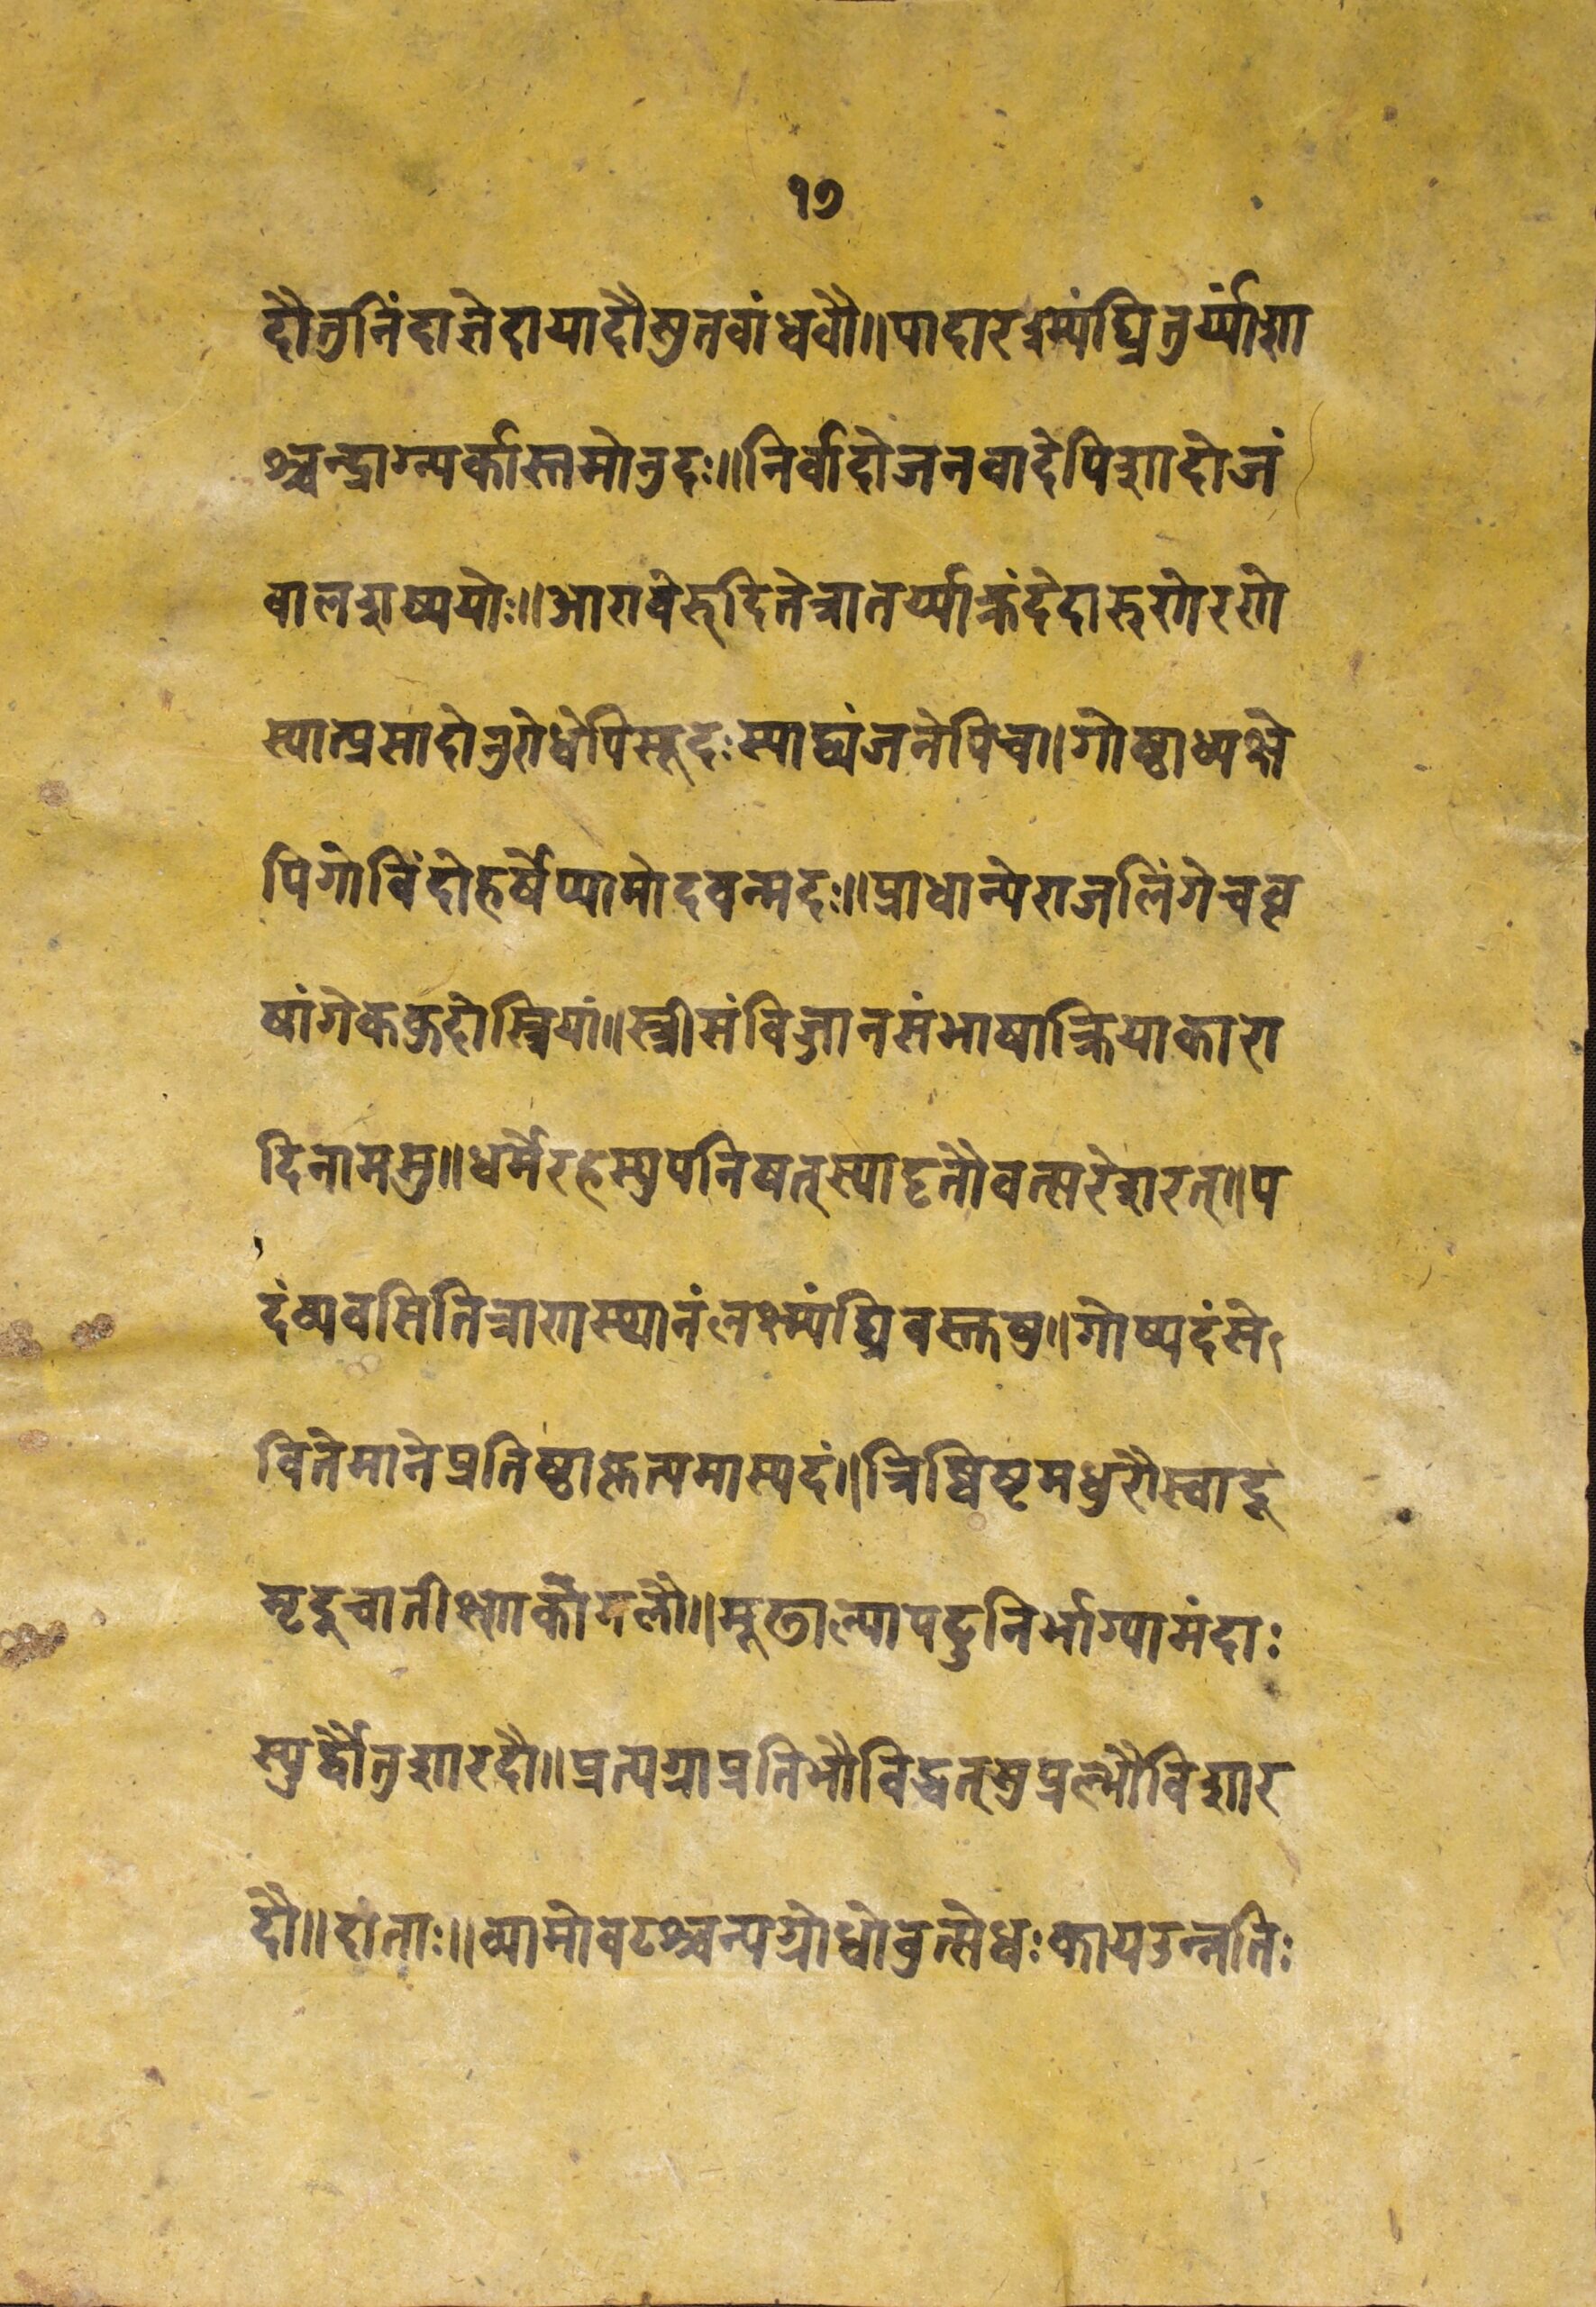 १७
दौतुनिंदाज्ञेदायादौसुतवांधवौ॥पादारश्म्यंघ्रितुर्य्यांशा
श्चन्द्राग्न्यर्कास्तमोनुदः॥निर्वादोजनवादेपिशादोजं
वालशष्पयोः॥आरावेरुदितेत्रातर्य्याक्रंदेदारुणेरणे
स्यात्प्रसादोनुरोधेपिसूदःस्याद्व्यंजनेपिच॥गोष्ठाध्यक्षे
पिगोविंदोहर्षेप्यामोदवन्मदः॥प्राधान्येराजलिंगेचवृ
षांगेककुदोस्त्रियां॥स्त्रीसंविज्ञानसंभाषाक्रियाकारा
दिनामसु॥धर्मेरहस्युपनिषत्स्यादृतौवत्सरेशरत्॥प
दंव्यवसितित्राणस्थानंलक्ष्म्यंघ्रिवस्तुषु॥गोष्पदंसे
वितेमानेप्रतिष्ठाकृत्यमास्पदं॥त्रिष्विष्टमधुरौस्वादू
मृदूचातीक्ष्णकोमलौ॥मूढाल्पापटुनिर्भाग्यामंदाः
स्युर्द्वौतुशारदौ॥प्रत्यग्राप्रतिभौविद्वत्सुप्रल्भौविशार
दौ॥दांताः॥व्यामोवटश्चन्यग्रोधोवुत्सेधःकायउन्नतिः